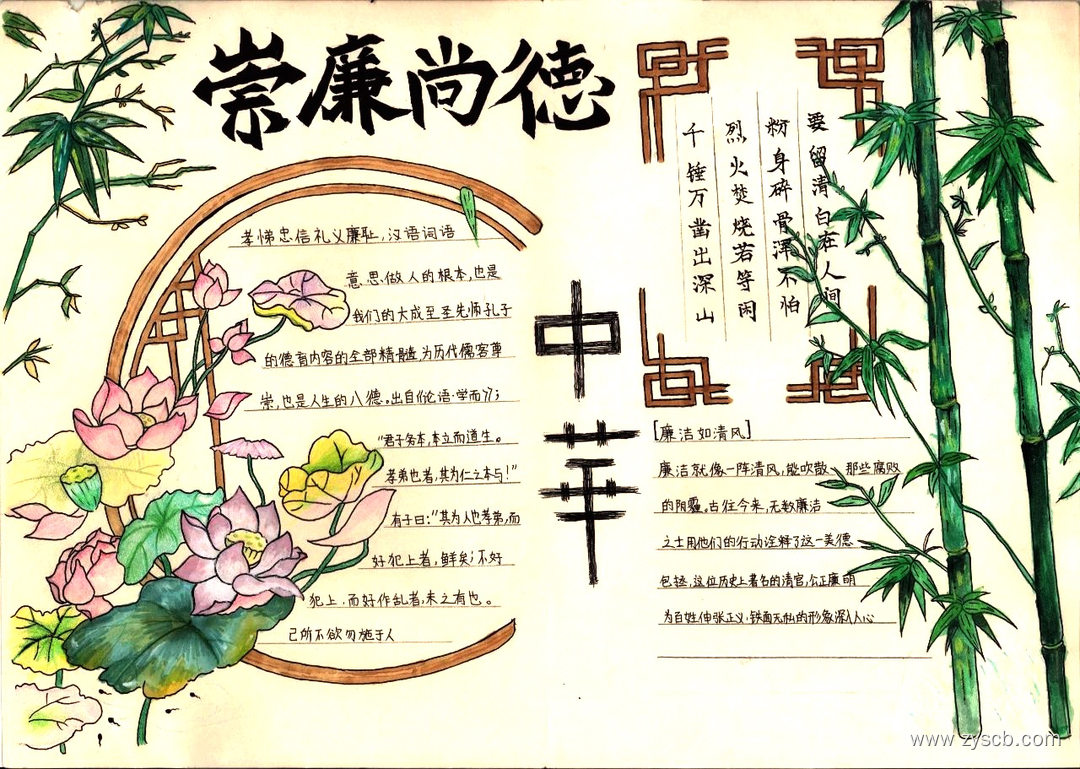 崇廉尚德
孝悌忠信礼义廉耻,汉语词语
意思做人的根本,也是
我们的大成至圣先师孔子
的德育内容的全部精髓,为历代儒客尊
崇,也是人生的八德。出自《论语·学而》:
“君子务本,本立而道生。
孝弟也者,其为仁之本与!”
有子曰:“其为人也孝弟,而
好犯上者,鲜矣;不好
犯上,而好作乱者,未之有也。
己所不欲勿施于人
中华
千锤万凿出深山
烈火焚烧若等闲
粉身碎骨浑不怕
要留清白在人间
[廉洁如清风]
廉洁就像一阵清风,能吹散 那些腐败
的阴霾。古往今来,无数廉洁
之士用他们的行动诠释了这一美德
包拯,这位历史上著名的清官,公正廉明
为百姓伸张正义,铁面无私的形象深入人心
www.zyscb.com